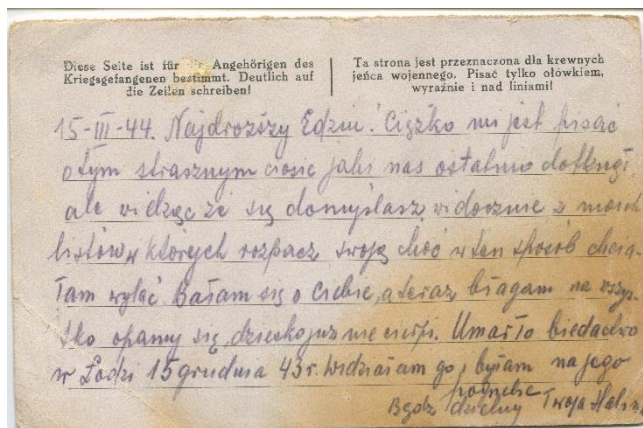 Diese Seite ist für die Angehörigen des
Kriegsgefangenen bestimmt. Deutlich auf
die Zeilen schreiben!
Ta strona jest przeznaczona dla krewnych
jeńca wojennego. Pisać tylko ołówkiem,
wyraźnie i nad liniami!
15-III-44. Najdroższy Edziu! Ciężko mi jest pisać
o tym strasznym ciosie jaki nas ostatnio dotknął
ale widzę że się domyślasz widocznie z moich
listów w których rozpacz swoją choć w ten sposób chcia-
łam wylać. Bałam się o Ciebie, a teraz błagam na wszy-
stko opamy się, dziecko już nie cierpi. Umarło biedactwo
w Łodzi 15 grudnia 43 r. Widziałam go, byłam na jego
pogrzebie
Bądź dzielny Twoja Halina